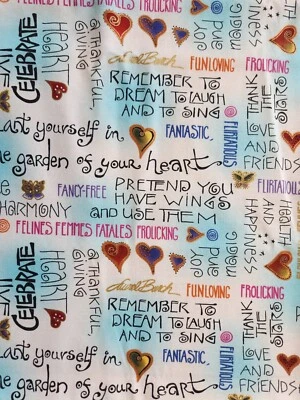 FELINES FEMMES FATALES FROLICKING
CELEBRATE
HEART
A THANKFUL
GIVING
Laurel Burch
FUN LOVING
FROLICKING
REMEMBER TO
DREAM TO LAUGH
AND TO SING
Joy
HAPPINESS
THANK
THE
STARS
ant yourself in
FANTASTIC,
FLIRTATIOUS
LOVE
AND
FRIENDS
e garden of your heart
FANCY-FREE
PRETEND YOU
HAVE WINGS
and USE THEM
FLIRTATIOU
HARMONY
HEALTH
AND
HAPPINESS
FELINES FEMMES FATALES FROLICKING
LIVE
CELEBRATE
HEART
A THANKFUL
GIVING
Laurel Burch
FUN LOVING
FROLICKING
REMEMBER TO
DREAM TO LAUGH
AND TO SING
Joy
THANK
THE
STARS
ant yourself in
FANTASTIC,
FLIRTATIOUS
LOVE
AND
FRIENDS
e garden of your heart